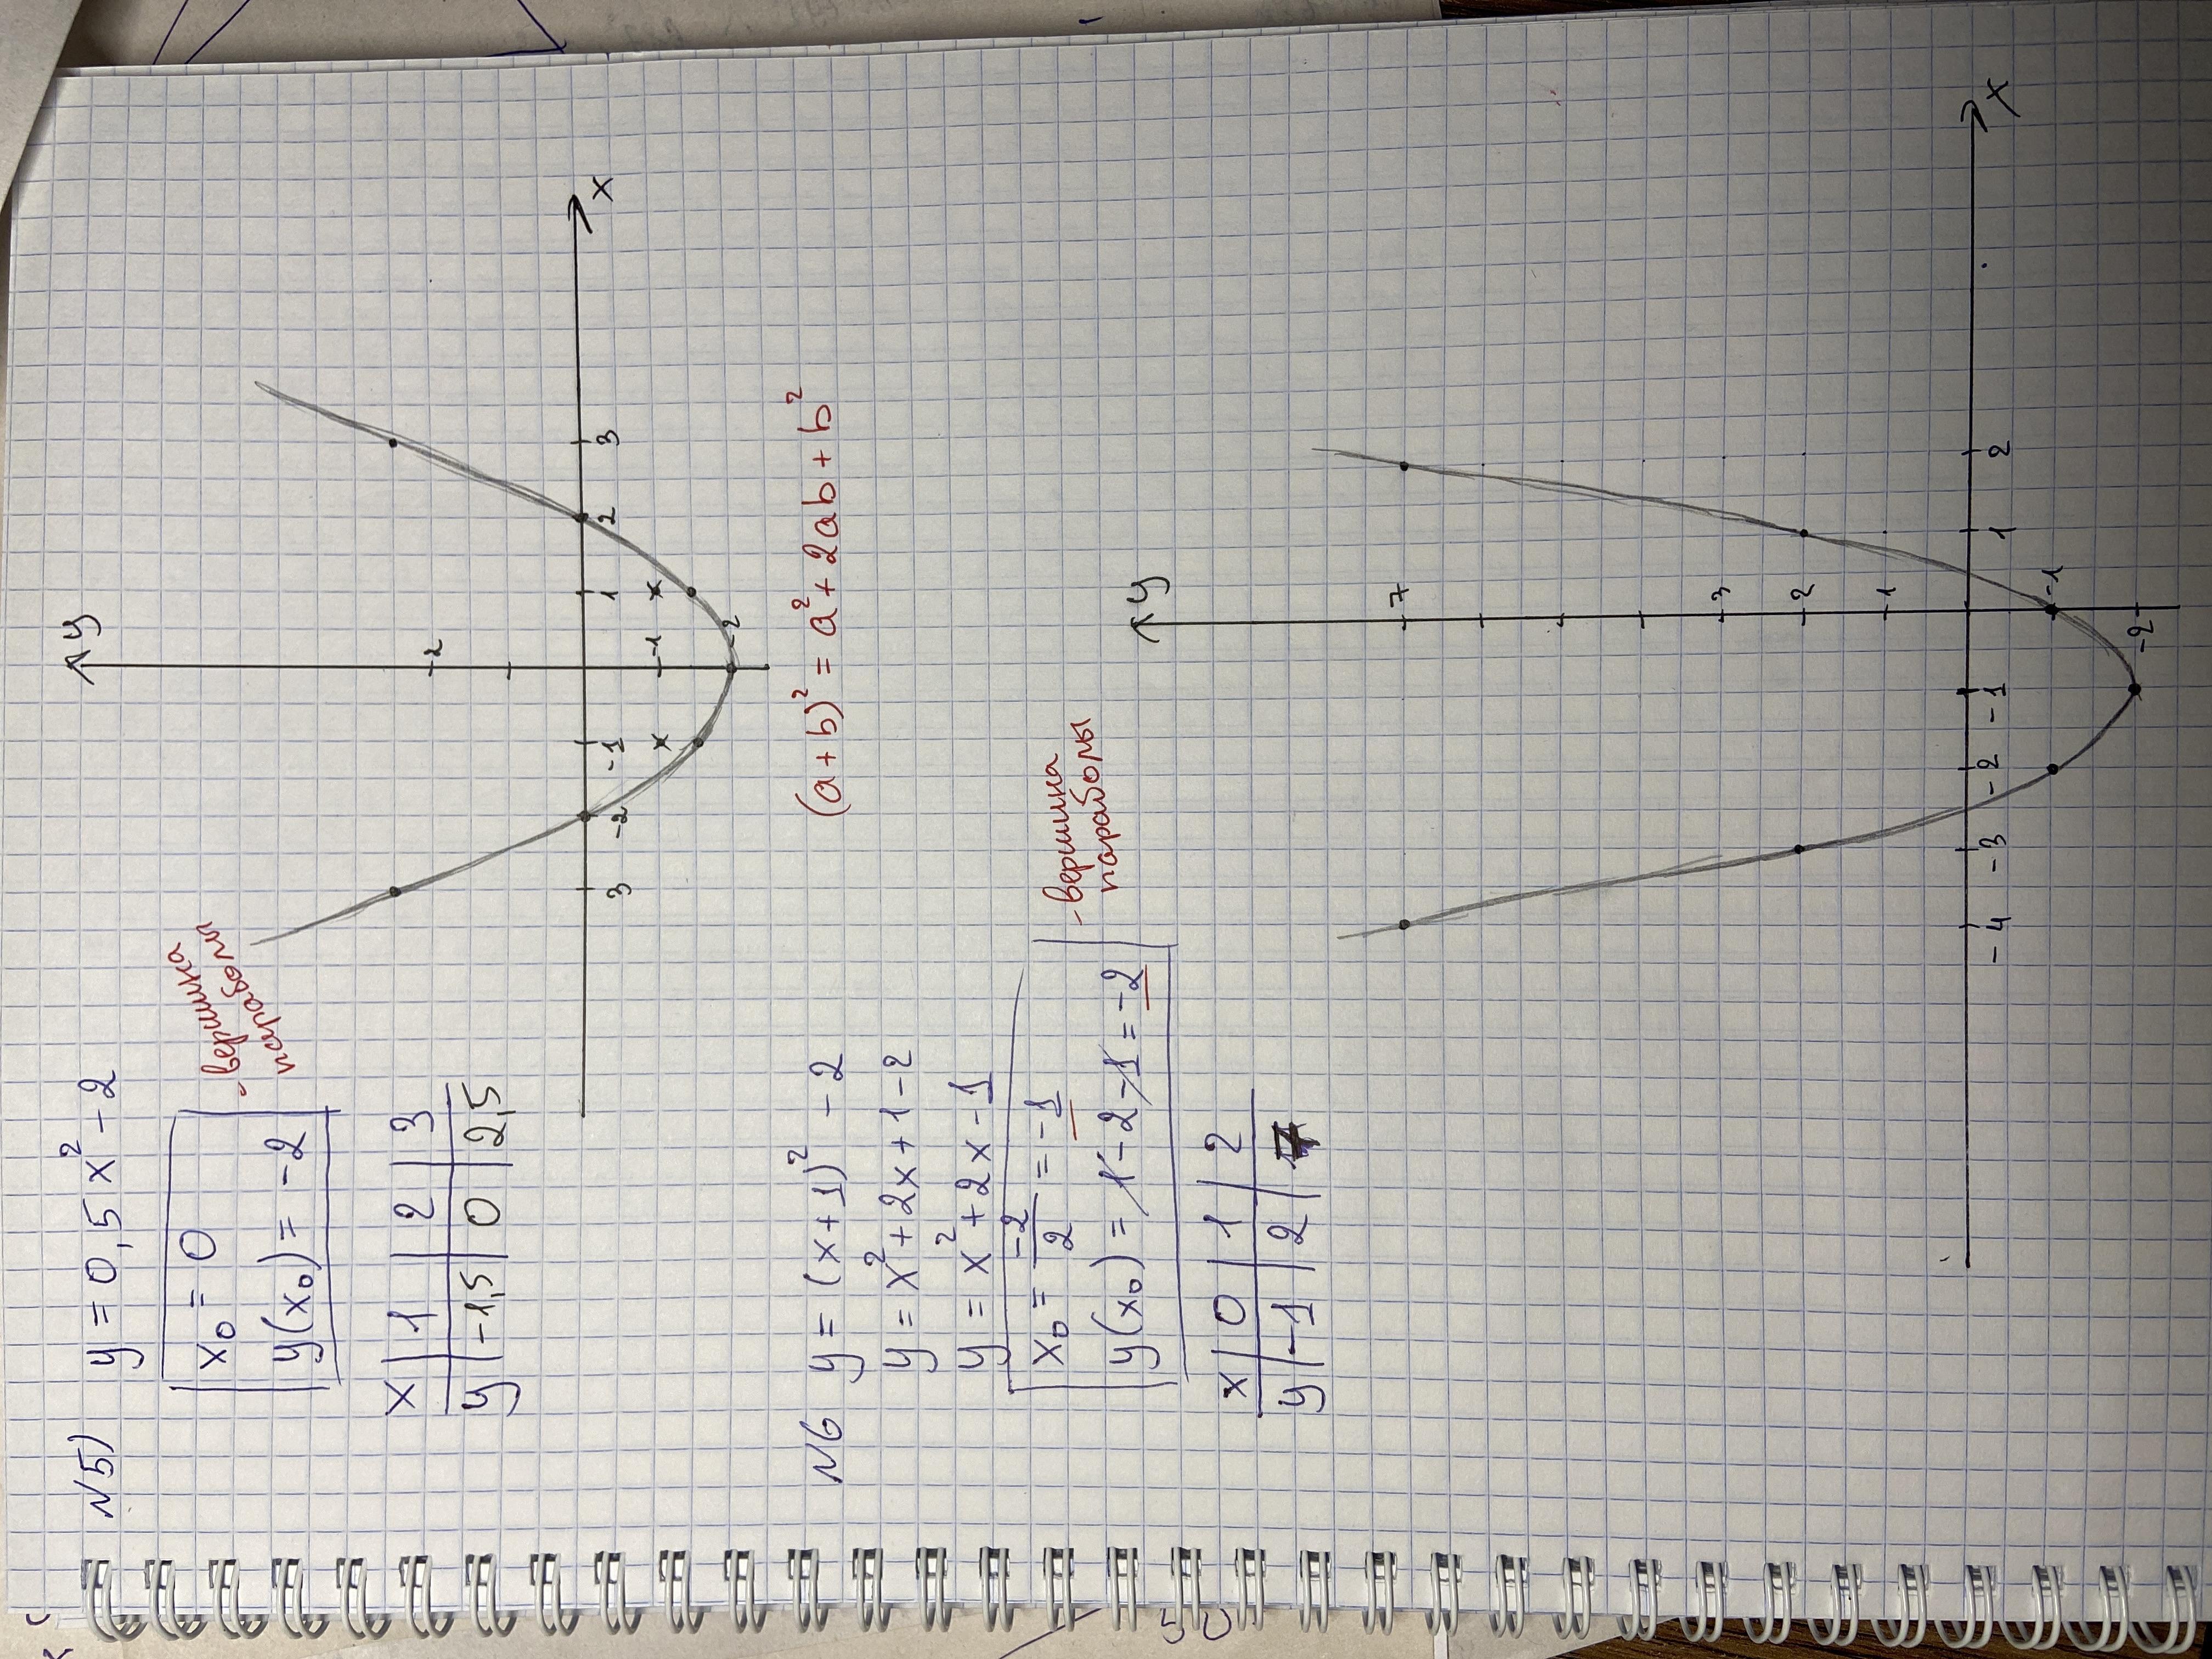 N5) y = 0,5x² - 2
x₀ = 0
y(x₀) = -2
- вершина
параболы
x | 1 | 2 | 3
y | -1,5 | 0 | 2,5
y
2
-1
-2
3 -2 -1 1 2 3
x
(a+b)² = a² + 2ab + b²
N6 y = (x+1)² - 2
y = x² + 2x + 1 - 2
y = x² + 2x - 1
x₀ = -2/2 = -1
y(x₀) = 1 - 2 - 1 = -2
- вершина
параболы
x | 0 | 1 | 2
y | -1 | 2 | 7
y
7
3
2
1
-1
-2
-4 -3 -2 -1 1 2
x